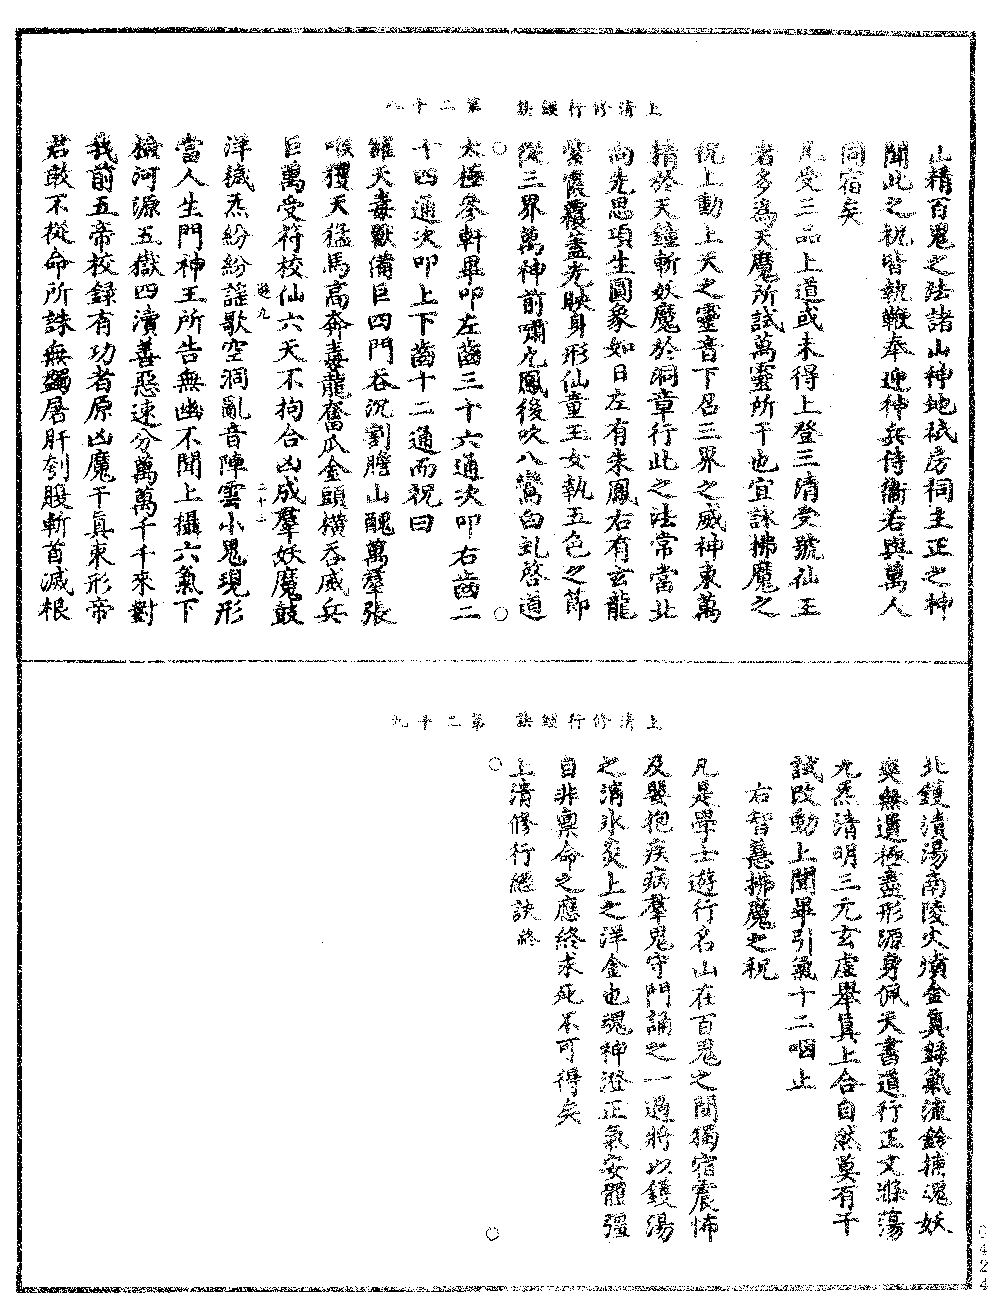 上清修行經訣　第二十八
山精百鬼之法諸山神地祇房祠主正之神
聞此之祝皆執鞭奉迎神兵侍衞若與萬人
同宿矣
凡受三品上道或未得上登三清受號仙王
者多爲天魔所試萬靈所干也宜詠拂魔之
祝上動上天之靈音下召三界之威神東萬
精於天鐘斬妖魔於洞章行此之法常當北
向先思項生圓象如日左有朱鳳右有玄龍
紫霞覆蓋光映身形仙童玉女執五色之節
從三界萬神前嘯九鳳後吹八鸞白虬啓道
太極參軒畢叩左齒三十六通次叩右齒二
十四通次叩上下齒十二通而祝曰
䍦天毒獸備巨四門吞沉割膽山醜萬羣張
喉玃天猛馬高奔毒龍奮爪金頭橫吞威兵
巨萬受符校仙六天不拘合凶成羣妖魔鼓
遊九　二十二
洋穢炁紛紛謡歌空洞亂音陣雲小鬼現形
當人生門神王所告無幽不聞上攝六氣下
檢河源五嶽四瀆善惡速分萬萬千千來對
我前五帝校錄有功者原凶魔干眞東形帝
君敢不從命所誅無蠲屠肝刳腹斬首滅根
上清修行經訣　第二十九
北鑊濆湯南陵火燌金眞錄氣流鈴捕魂妖
爽無遺極盡形源身佩天書道行正文滌蕩
九炁清明三元玄虛舉眞上合自然莫有干
試改動上聞畢引氣十二咽止
右智慧拂魔之祝
凡是學士遊行名山在百鬼之間獨宿震怖
及嬰抱疾病羣鬼守門誦之一過將以鑊湯
之消氷炎上之洋金也魂神澄正氣安體彊
自非稟命之應終求死不可得矣
上清修行經訣終
0424